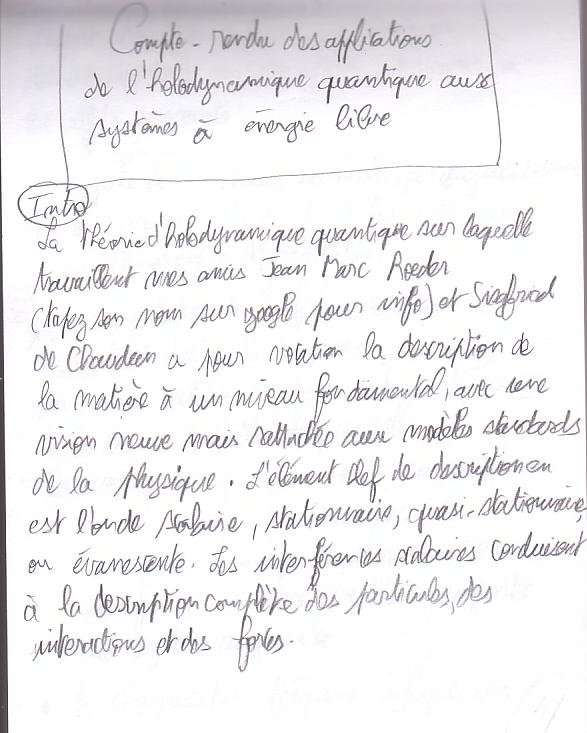 Compte-rendu des applications
de l'holodynamique quantique aux
systèmes à énergie libre
Intro
La théorie d'holodynamique quantique sur laquelle
travaillent mes amis Jean Marc Roeder
(tapez son nom sur google pour info) et Siegfried
de a pour vocation la description de
la matière à un niveau fondamental, avec une
vision neuve mais rattachée aux modèles standards
de la physique. L'élément clef de description en
est l'onde scalaire, stationnaire, quasi-stationnaire,
ou évanescente. Les interférences scalaires conduisent
à la description complète des particules, des
interactions et des forces.